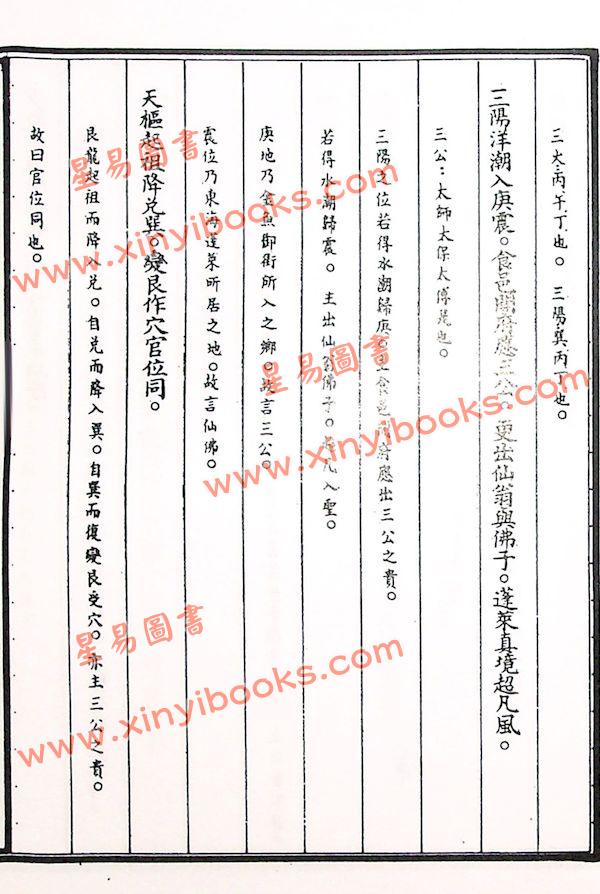 三火。丙午丁也。 三陽。巽丙丁也。
三陽洋潮入庚震。食邑開府應三公。更出仙翁與佛子。蓬萊真境超凡風。
三公：太師太保太傅是也。
三陽之位若得水潮歸庚。主食邑開府應出三公之貴。
若得水潮歸震。 主出仙翁佛子。超凡入聖。
庚地乃金魚御街所入之鄉。故言三公。
震位乃東海蓬萊所居之地。故言仙佛。
天樞起祖降兌巽。變艮作穴官位同。
艮龍起祖而降入兌。自兌而降入巽。自巽而復變艮受穴。亦主三公之貴。
故曰官位同也。
星易圖書
www.xinyibooks.com
星易圖書
www.xinyibooks.com
星易圖書
www.xinyibooks.com